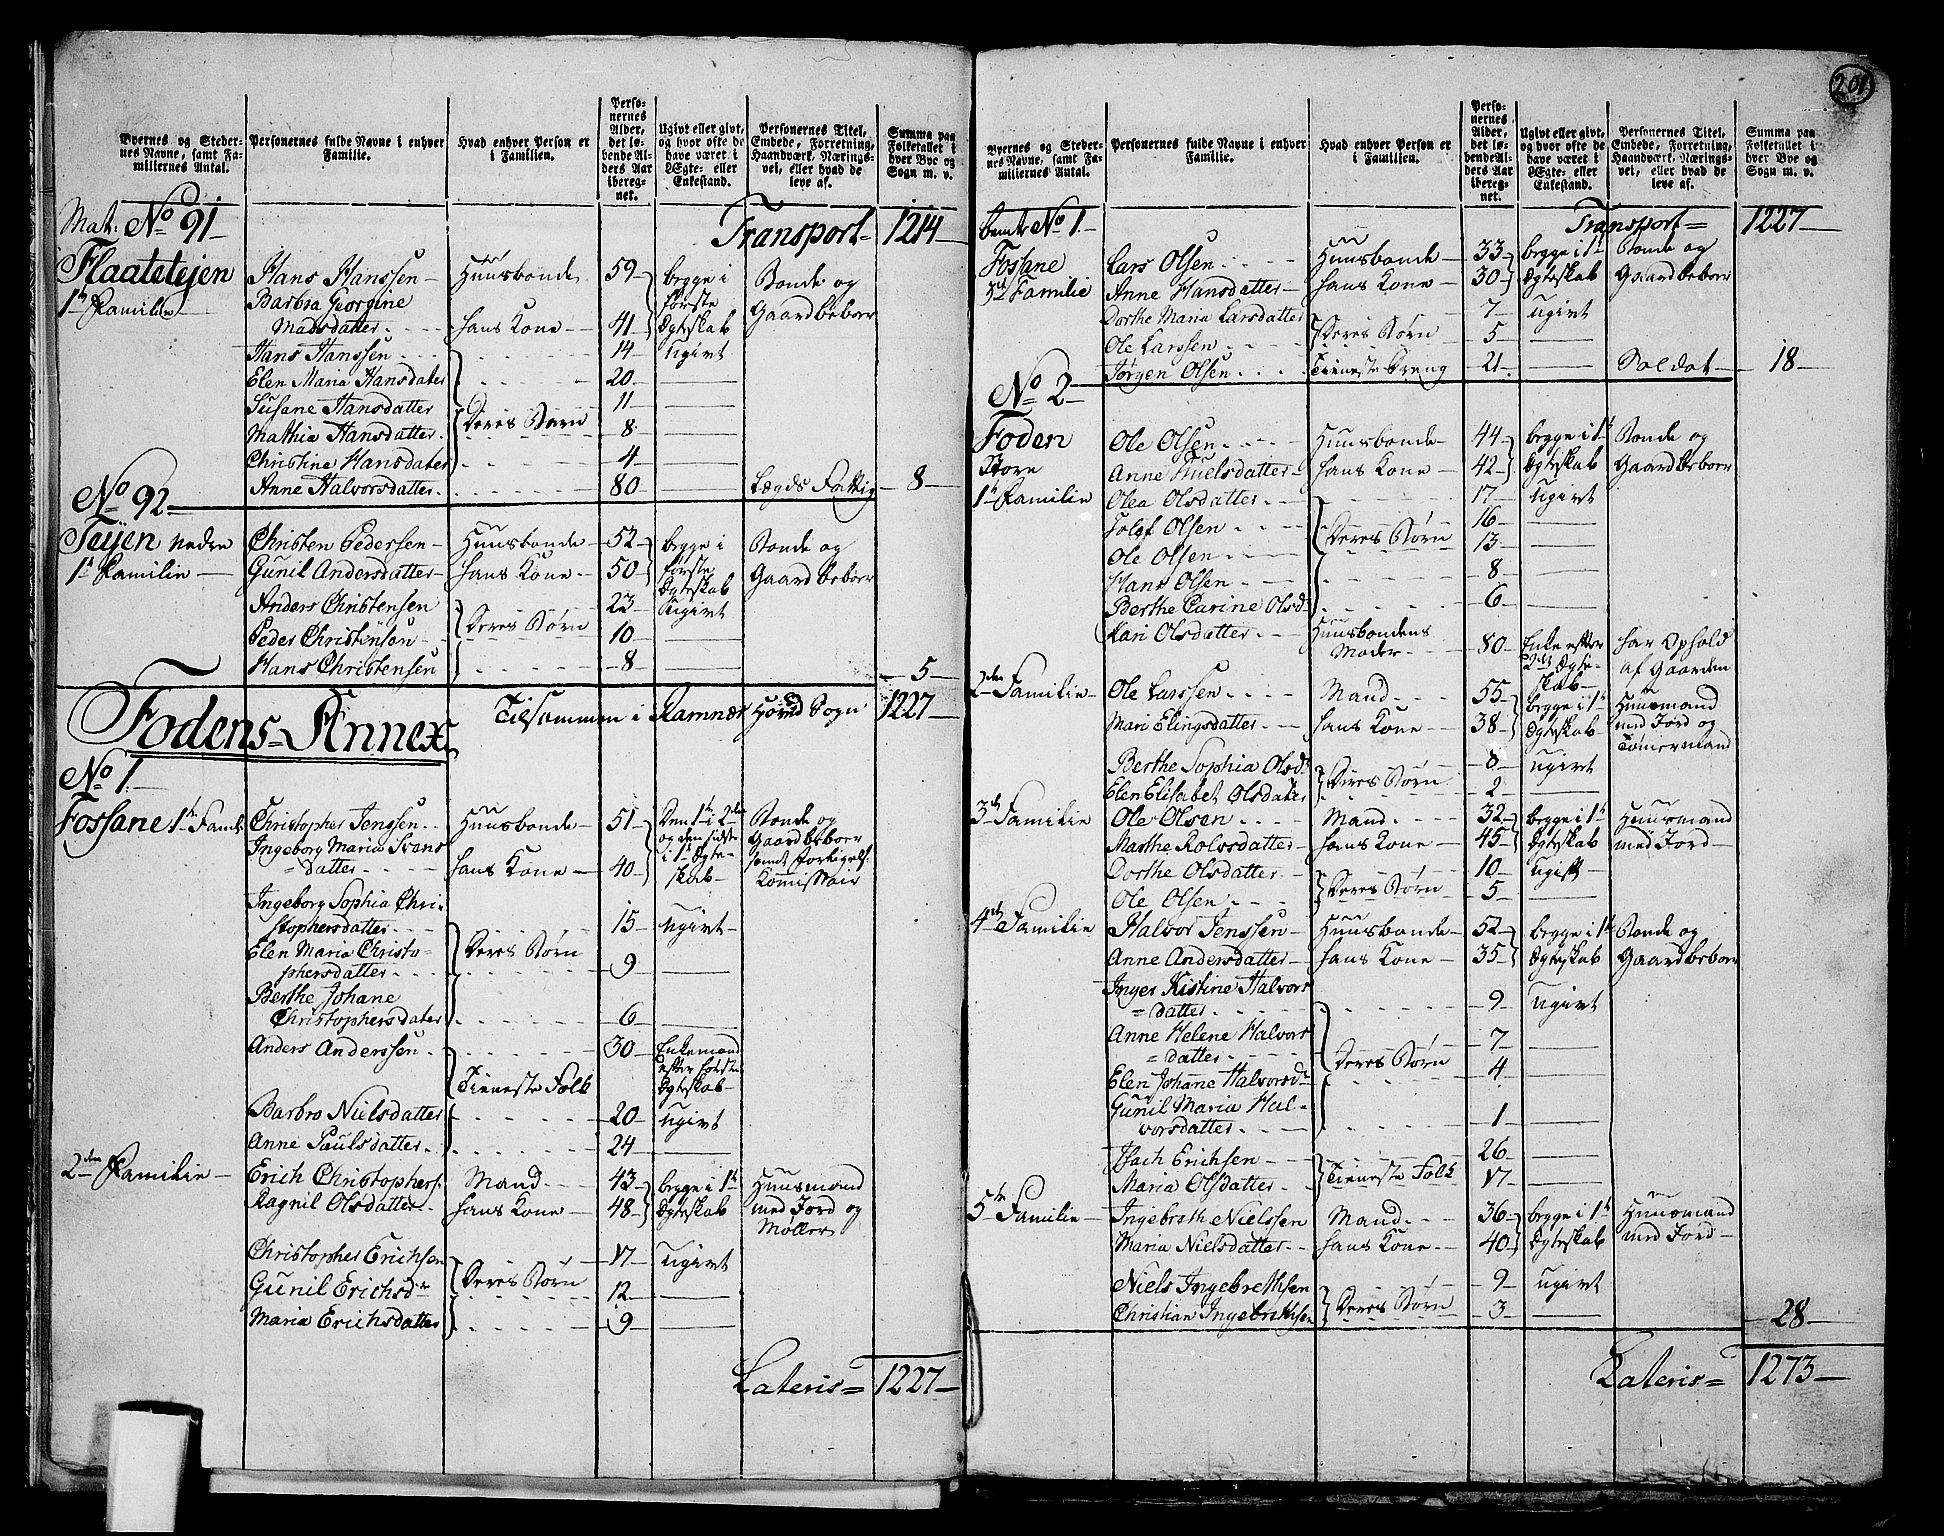 201
Byernes og Stedernes Navne, samt Familiernes Antal. | Personernes fulde Navne i enhver Familie. | Hvad enhver Person er i Familien. | Personernes Alder, det løbende Alders Aar iberegnet. | Ugivt eller givt, og hvor ofte de have været i Ægte- eller Enkestand. | Personernes Titel, Embede, Forretning, Haandværk, Næringsvei, eller hvad de leve af. | Summa paa Folketallet i hver Bye og Sogn m. v.
Mat: No 91 Transport= 1214
Flaatetejen Hans Hanssen Huusbonde 59 begge i Bonde og
1te Familie Barbra Georgine første Gaardbeboer
Madsdatter hans Kone 41 Ægteskab
Hans Hanssen 14 ugivt
Elen Maria Hansdater 20 —
Susane Hansdatter Deres Børn 11 —
Mathia Hansdatter 8 —
Christine Hansdater 4 —
Anne Halvorsdatter 80 — Lægds Fattig 8
No 92
Teijen nedre Christen Pedersen Huusbonde 52 begge i Bonde og
1te Familie Gunil Andersdatter hans Kone 50 første Gaardbeboer
Ægteskab
Anders Christensen 23 ugivt
Peder Christensøn Deres Børn 10 —
Hans Christensen 8 — 5
Fodens=Annex Tilsammen i Ramnæs Hoved Sogn 1227
No 1
Fossane 1te Famil: Christopher Jenssen Huusbonde 51 Den 1te i 2den Bonde og
Ingeborg Maria Svens og den sidste Gaardbeboer
=datter hans Kone 40 i 1te Ægte= samt Forligels:
skab Kommissair
Ingeborg Sophia Chri=
stophersdatter 15 ugivt
Elen Maria Christo= Deres Børn
phersdatter 9 —
Berthe Johane
Christophersdater 6 —
Anders Anderssen 30 Enkemand
efter første
Tieneste Folk Ægteskab
Barbro Nielsdatter 20 ugivt
Anne Paulsdatter 24 —
2den Familie Erich Christophers: Mand 43 begge i 1te Huusmand
Ragnil Olsdatter hans Kone 48 Ægteskab med Jord og
Møller
Christopher Erichsen 17 ugivt
Gunil Erichsdr Deres Børn 12 —
Maria Erichsdatter 9 —
Lateris= 1227
Byernes og Stedernes Navne, samt Familiernes Antal. | Personernes fulde Navne i enhver Familie. | Hvad enhver Person er i Familien. | Personernes Alder, det løbende Alders Aar iberegnet. | Ugivt eller givt, og hvor ofte de have været i Ægte- eller Enkestand. | Personernes Titel, Embede, Forretning, Haandværk, Næringsvei, eller hvad de leve af. | Summa paa Folketallet i hver Bye og Sogn m. v.
No 1 Transport= 1227
Fossane Lars Olsen Huusbonde 33 begge i 1te Bonde og
3de Familie Anne Hansdatter hans Kone 30 Ægteskab Gaardbeboer
Dorthe Maria Larsdatter 7 ugivt
Ole Larssen Deres Børn 5 —
Jørgen Olsen Tieneste Dreng 21 — Soldat 18
No 2
Foden Ole Olsen Huusbonde 44 begge i 1te Bonde og
Store Anne Truelsdatter hans Kone 42 Ægteskab Gaardbeboer
1te Familie Olea Olsdatter 17 ugivt
Tolef Olsen 16 —
Ole Olsen Deres Børn 13 —
Hans Olsen 8 —
Berthe Carine Olsd: 6 —
Kari Olsdatter Huusbondens
Moder 80 Enke efter har Ophold
2det Ægte= af Gaarden
skab
2den Familie Ole Larssen Mand 55 begge i 1te Huusmand
Mari Elingsdatter hans Kone 38 Ægteskab med Jord og
Tømermand
Berthe Sophia Olsd: 8 ugivt
Elen Elisabet Olsdater Deres Børn 2 —
3de Familie Ole Olsen Mand 32 begge i 1te Huusmand
Marthe Rolvsdatter hans Kone 45 Ægteskab med Jord
Dorthe Olsdatter 10 ugift
Ole Olsen Deres Børn 5 —
4de Familie Halvor Jenssen Huusbonde 52 begge i 1te Bonde og
Anne Andersdatter hans Kone 35 Ægteskab Gaardbeboer
Inger Kistine Halvors
=datter 9 ugivt
Anne Helene Halvors
=datter Deres Børn 7 —
Elen Johane Halvorsdr 4 —
Gunil Maria Hal=
vorsdatter 1 —
Isach Erichsen 26 —
Maria Olsdatter Tieneste Folk 17 —
5te Familie Ingebreth Nielssen Mand 36 begge i 1te Huusmand
Maria Nielsdatter hans Kone 40 Ægteskab med Jord
Niels Ingebrethsen 9 ugivt
Christian Ingebrethsen Deres Børn 3 — 28
Lateris= 1273